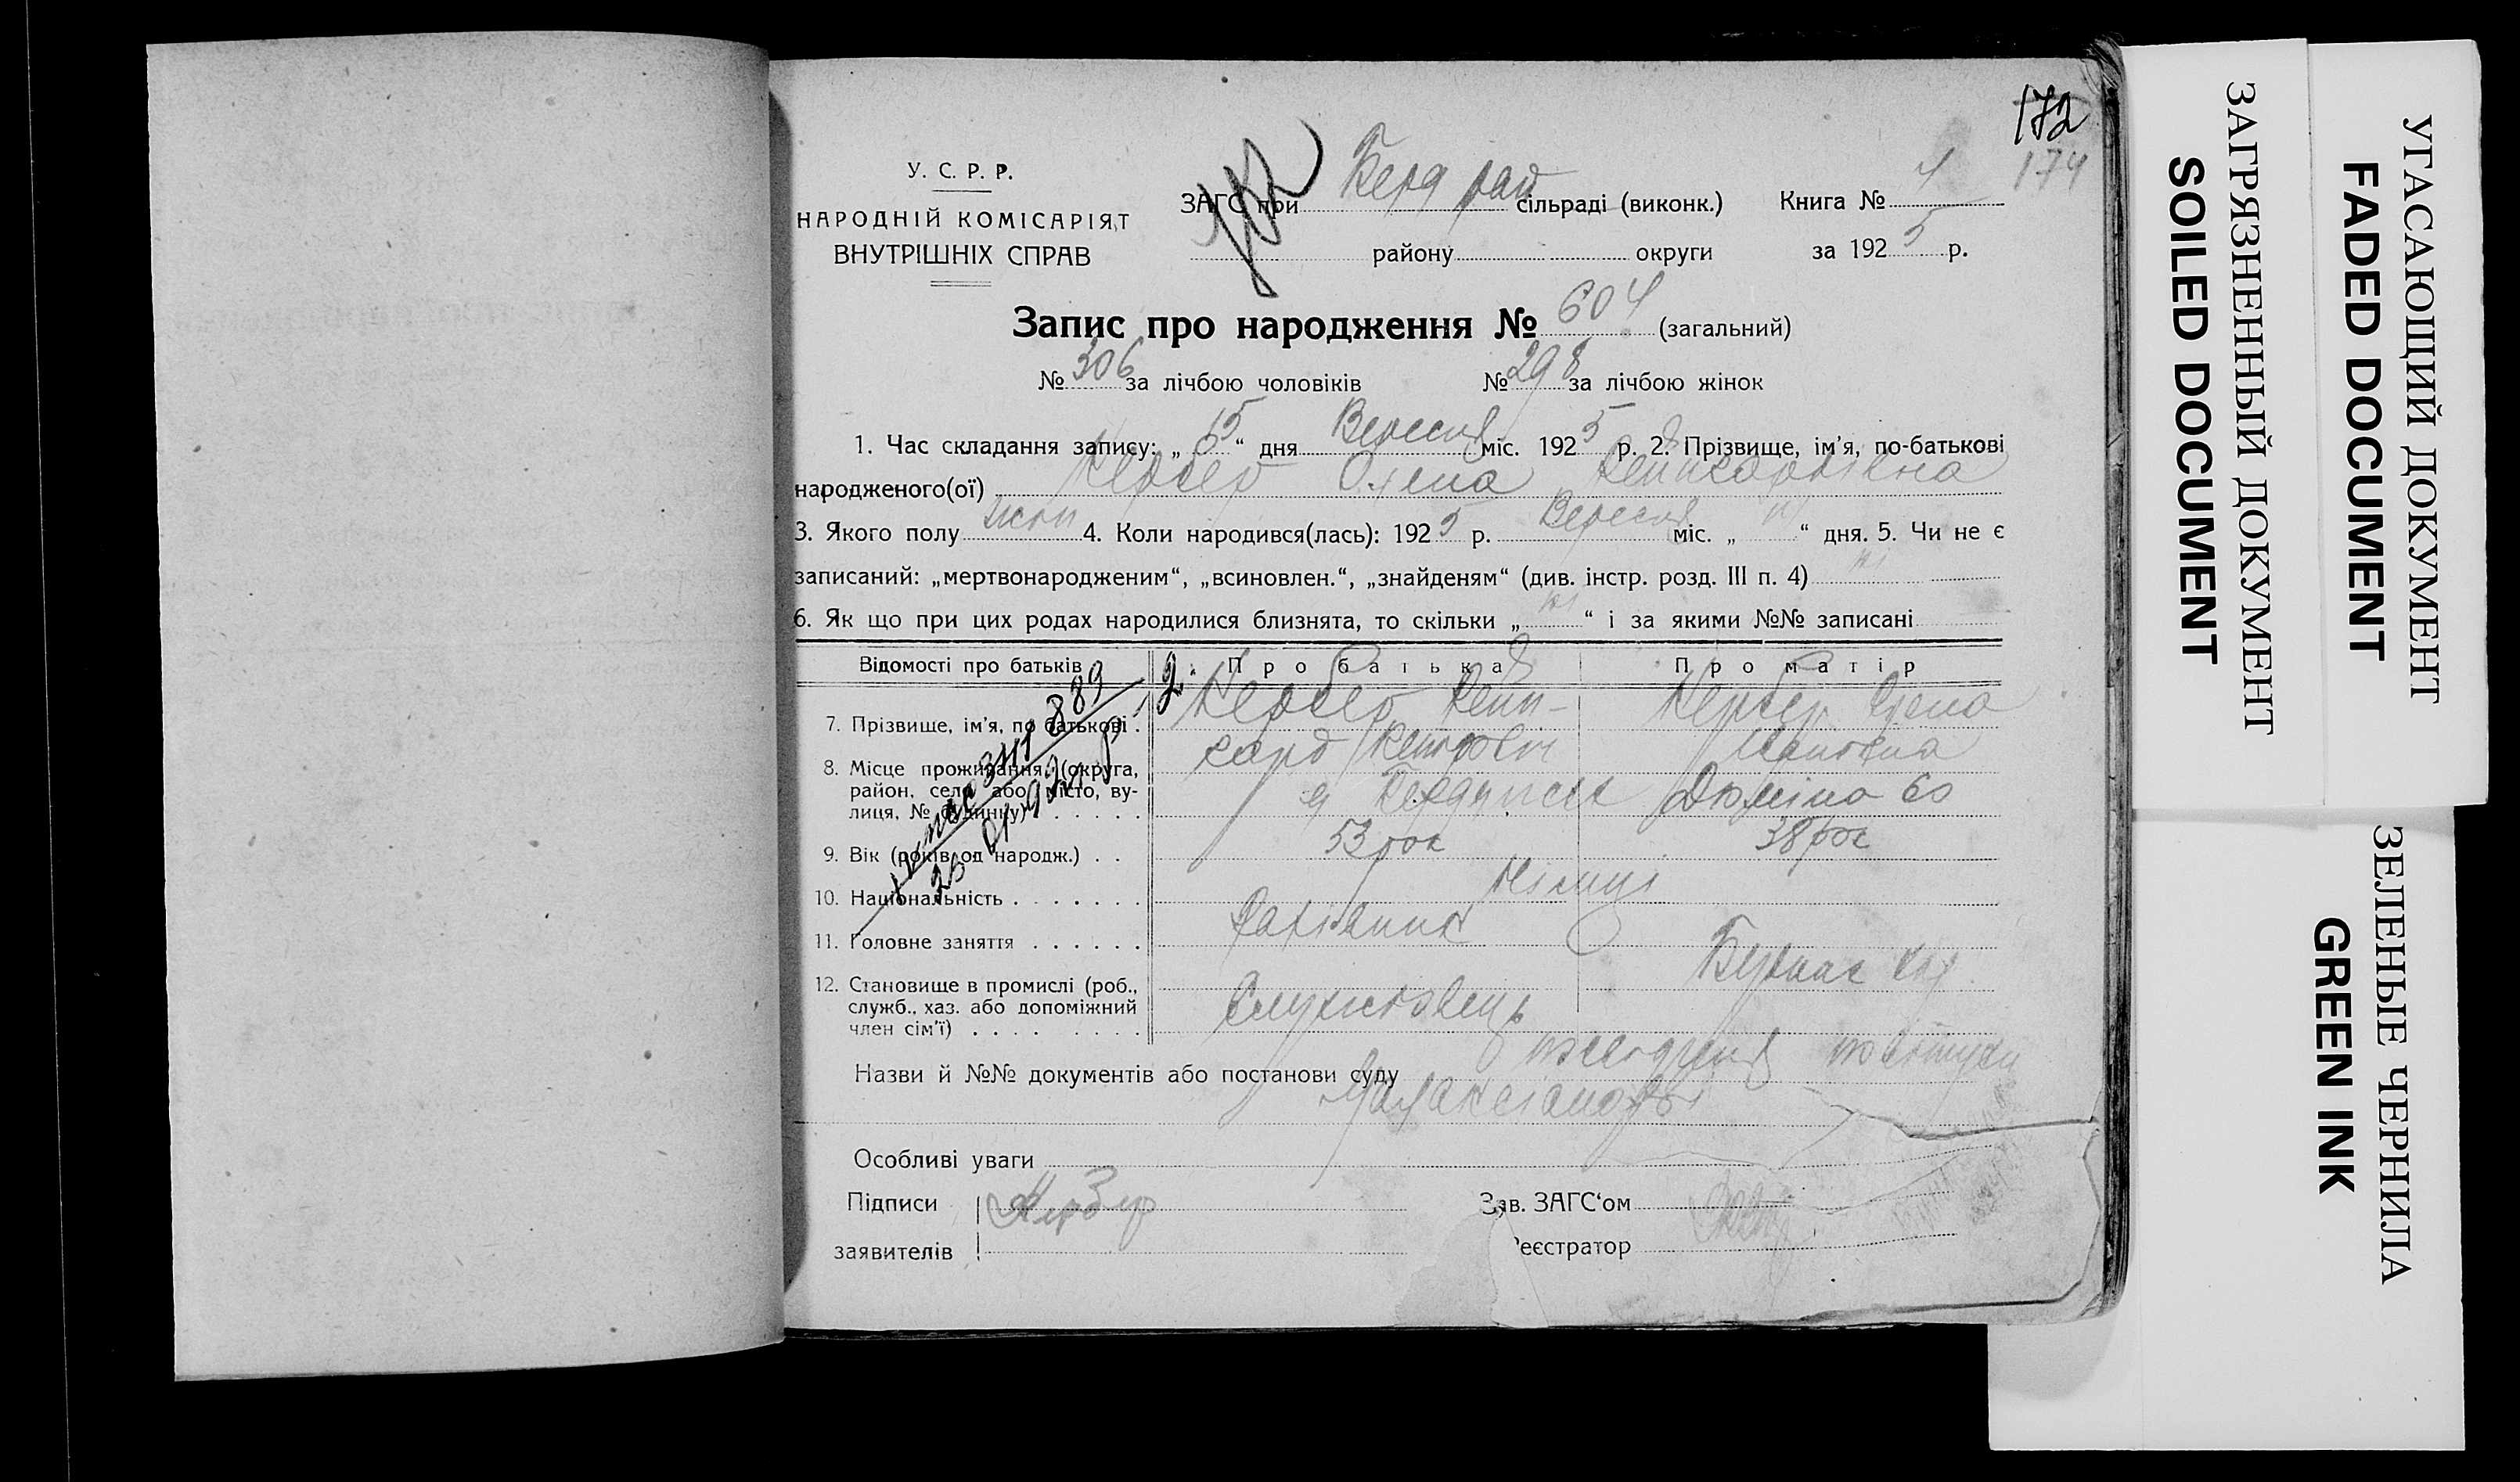 172
174
У. С. Р. Р.
НАРОДНІЙ КОМІСАРІЯТ
ВНУТРІШНІХ СПРАВ
ЗАГС при Берд рай сільраді (виконк.) Книга № 4
району округи за 1925 р.
Запис про народження № 604 (загальний)
№ 306 за лічбою чоловіків № 298 за лічбою жінок
1. Час складання запису: „15“ дня Вересня міс. 1925 р. 2. Прізвище, ім’я, по-батькові
народженого(ої) Кербер Олена
3. Якого полу жін 4. Коли народився(лась): 1925 р. Вересня міс. „ “ дня. 5. Чи не є
записаний: „мертвонародженим“, „всиновлен.“, „знайденям“ (див. інстр. розд. III п. 4) ні
6. Як що при цих родах народилися близнята, то скільки „ні“ і за якими №№ записані
Відомості про батьків 2. Про батька Про матір
7. Прізвище, ім’я, по батькові Кербер Кербер
8. Місце проживання (округа,
район, село або місто, ву-
лиця, № будинку) Дюміна 60
9. Вік (років од народж.) 53 рок 38 рок
10. Національність Німці
11. Головне заняття
12. Становище в промислі (роб.,
служб., хаз. або допоміжний
член сім’ї) Службовець
Назви й №№ документів або постанови суду
Особливі уваги
Підписи Кербер Зав. ЗАГС‘ом
заявителів Реєстратор
ЗАГРЯЗНЕННЫЙ ДОКУМЕНТ
SOILED DOCUMENT
УГАСАЮЩИЙ ДОКУМЕНТ
FADED DOCUMENT
ЗЕЛЕНЫЕ ЧЕРНИЛА
GREEN INK